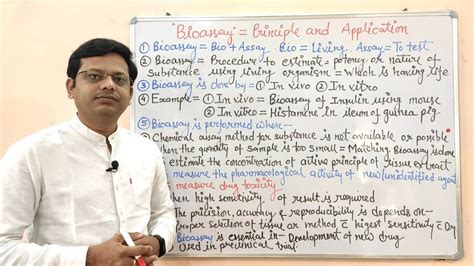 "Bioassay" = Principle and Application
① Bioassay = Bio + Assay. Bio = Living. Assay = To test
② Bioassay = Procedure to estimate potency or nature of
Substance using living organism = Which is having life
③ Bioassay is done by = ① In vivo ② In vitro
④ Example = ① In vivo = Bioassay of Insulin using mouse
② In vitro = Histamine in ileum of guinea pig
⑤ Bioassay is performed when-
Chemical assay method for substance is not available or possible
When the quantity of sample is too small = Matching Bioassay is done
estimate the concentration of active principle of tissue extract
measure the pharmacological activity of new/unidentified agent
measure drug toxicity
when high sensitivity of result is required
The precision, accuracy & reproducibility is depends on-
Proper selection of tissue or method c̄ highest sensitivity c̄
Bioassay is essential in - Development of new drug
Used in preclinical trial.